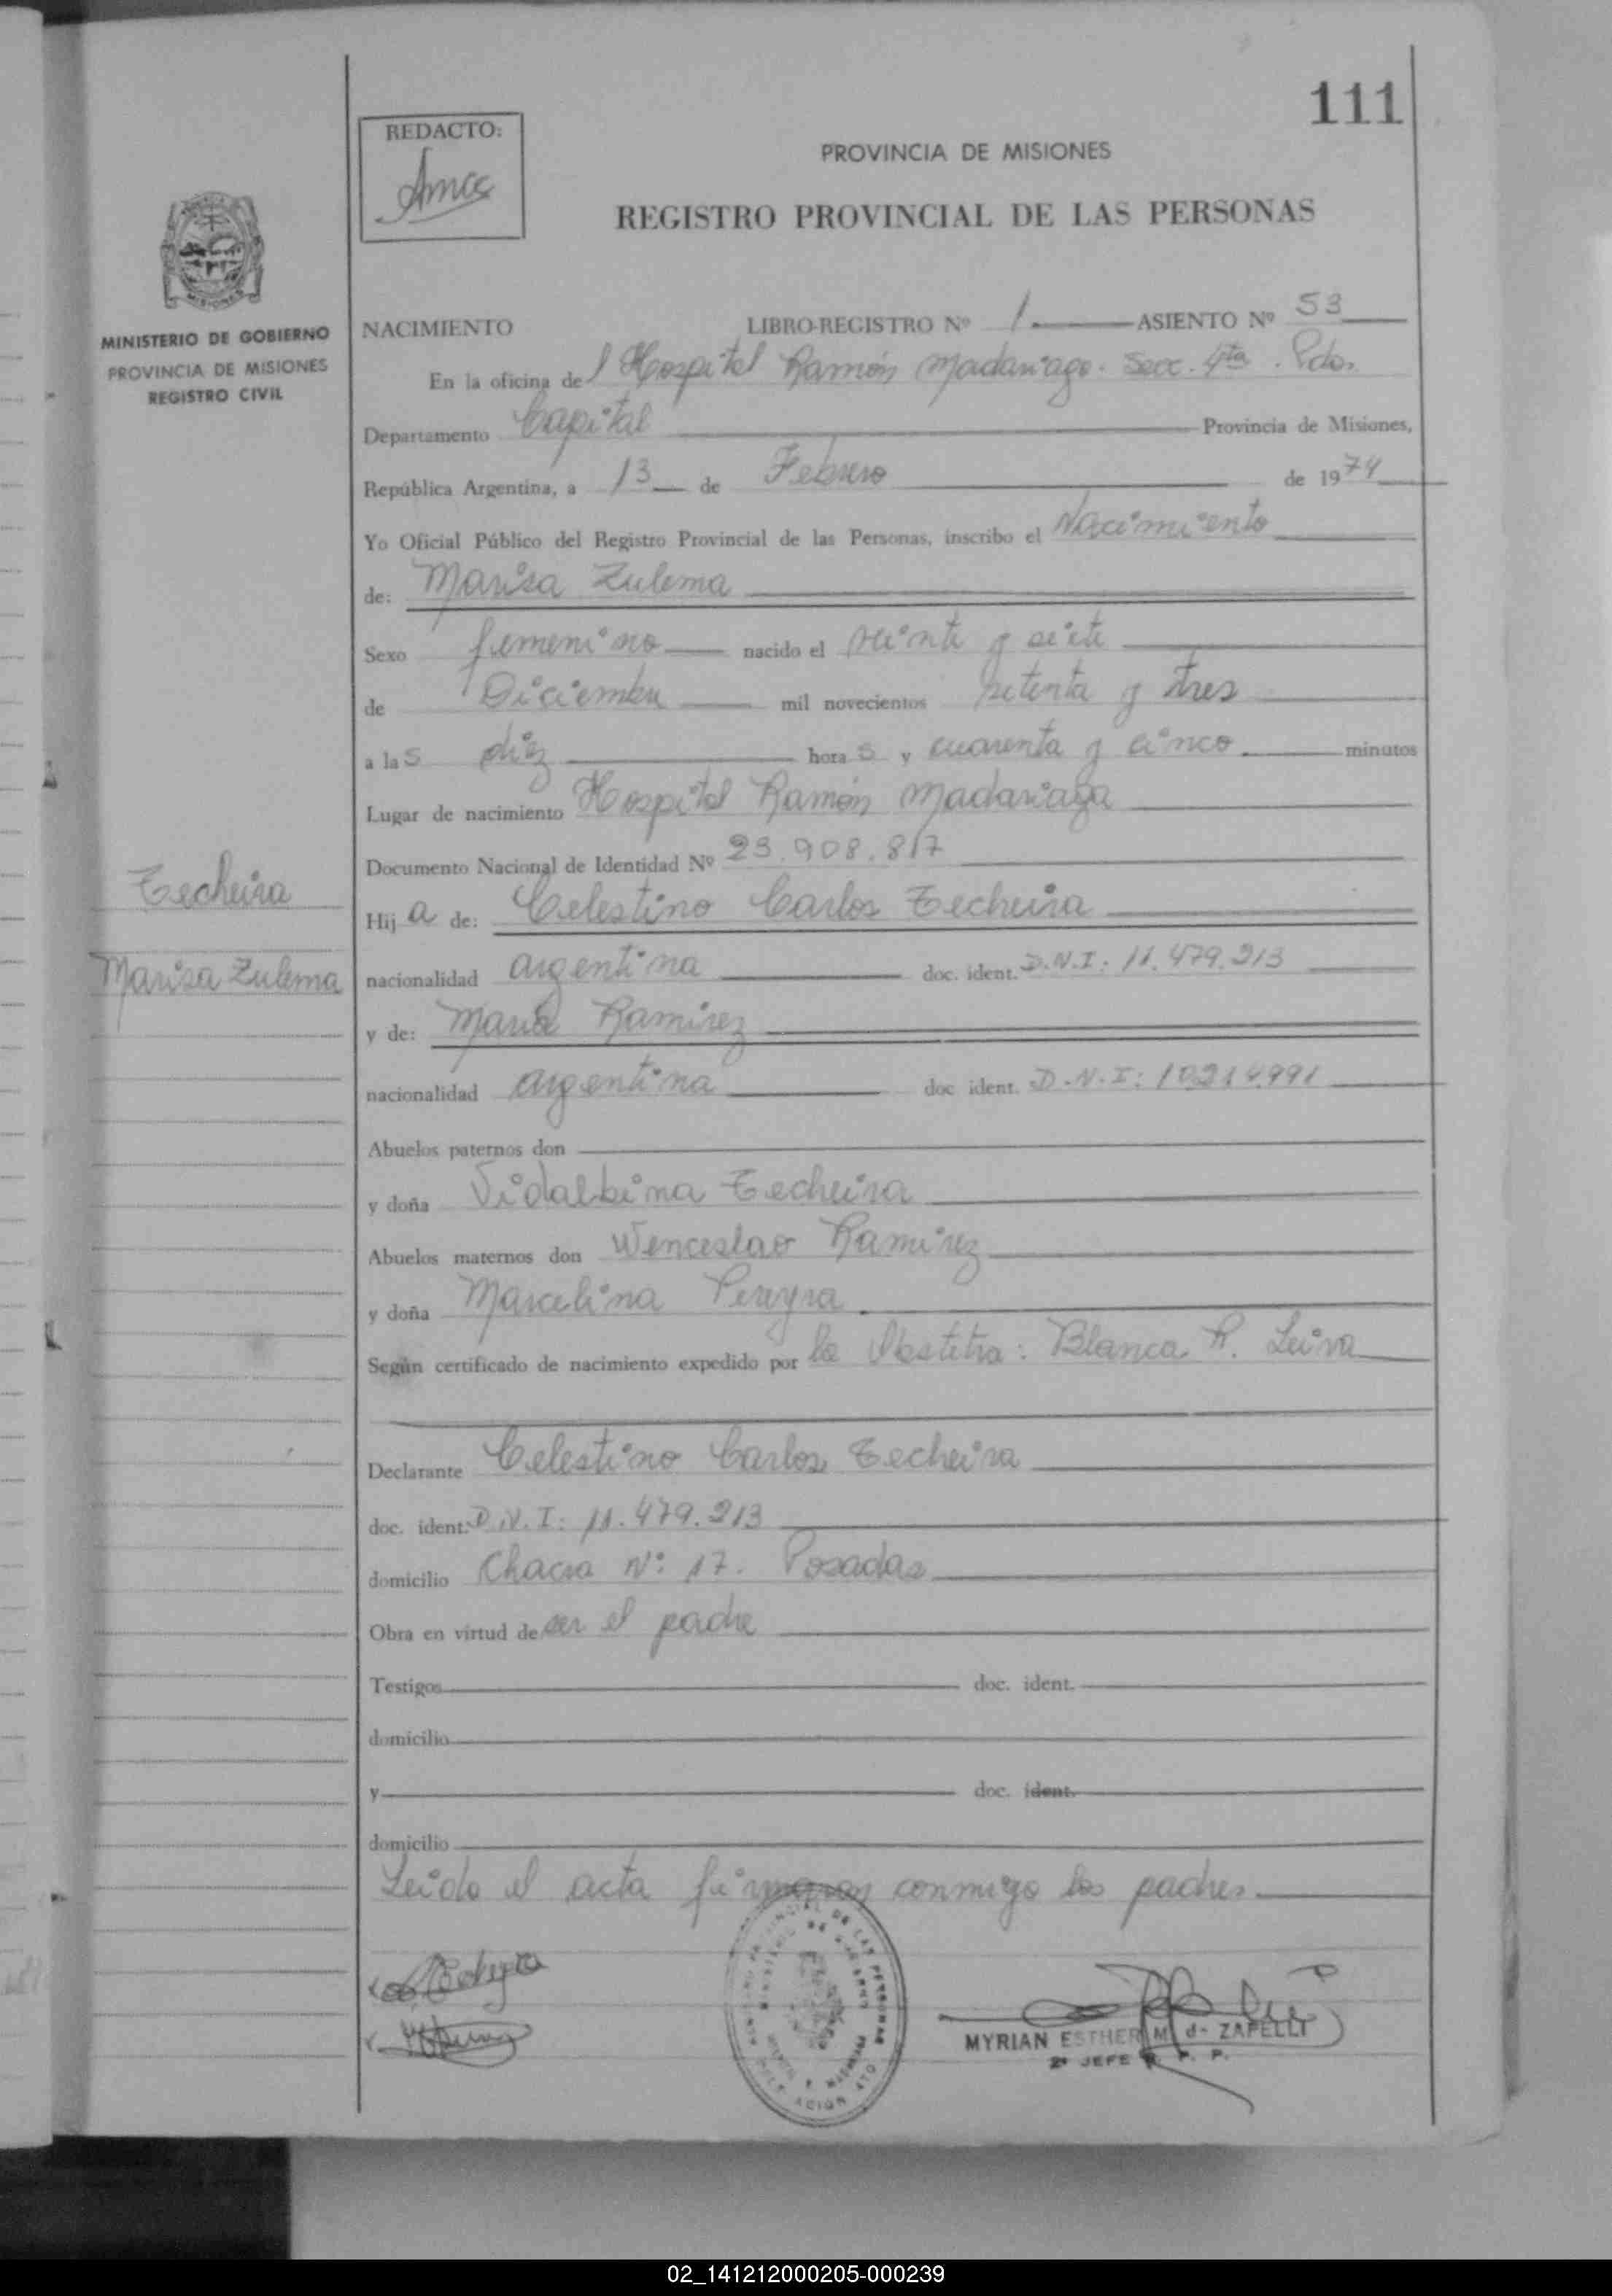 111
REDACTO:
PROVINCIA DE MISIONES
REGISTRO PROVINCIAL DE LAS PERSONAS
MISIONES
MINISTERIO DE GOBIERNO
PROVINCIA DE MISIONES
REGISTRO CIVIL
NACIMIENTO LIBRO-REGISTRO Nº 1 ASIENTO Nº 53
En la oficina de l Hospital Ramón Madariaga. Secc. 4ta. Pdas.
Departamento Capital Provincia de Misiones,
República Argentina, a 13 de Febrero de 1974
Yo Oficial Público del Registro Provincial de las Personas, inscribo el Nacimiento
de: Marisa Zulema
Sexo femenino nacido el veinte y siete
de Diciembre mil novecientos setenta y tres
a las diez horas y cuarenta y cinco minutos
Lugar de nacimiento Hospital Ramón Madariaga
Documento Nacional de Identidad Nº 23.908.817
Techeira
Hija de: Celestino Carlos Techeira
Marisa Zulema
nacionalidad argentina doc. ident. D.N.I: 11.479.213
y de: María Ramirez
nacionalidad argentina doc ident. D.N.I: 10.214.991
Abuelos paternos don
y doña Vidalbina Techeira
Abuelos maternos don Wenceslao Ramirez
y doña Marcelina Pereyra
Según certificado de nacimiento expedido por la Obstetra: Blanca R. Leiva
Declarante Celestino Carlos Techeira
doc. ident: D.N.I: 11.479.213
domicilio Chacra Nº: 17. Posadas
Obra en virtud de ser el padre
Testigos doc. ident.
domicilio
y doc. ident.
domicilio
Leido el acta firmaron conmigo los padres
MYRIAN ESTHER M. de ZAPELLI
2º JEFE R. P. P.
02_141212000205-000239